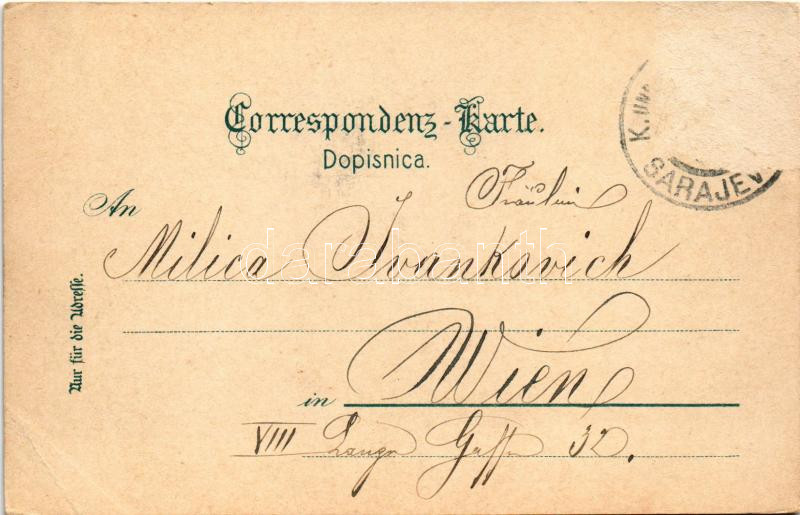 Correspondenz-Karte.
Dopisnica.
K. UND
SARAJEV
An
Fräulein
Milica Ivankovich
Nur für die Adresse.
in Wien
VIII Lange Gasse 32.
darabanth